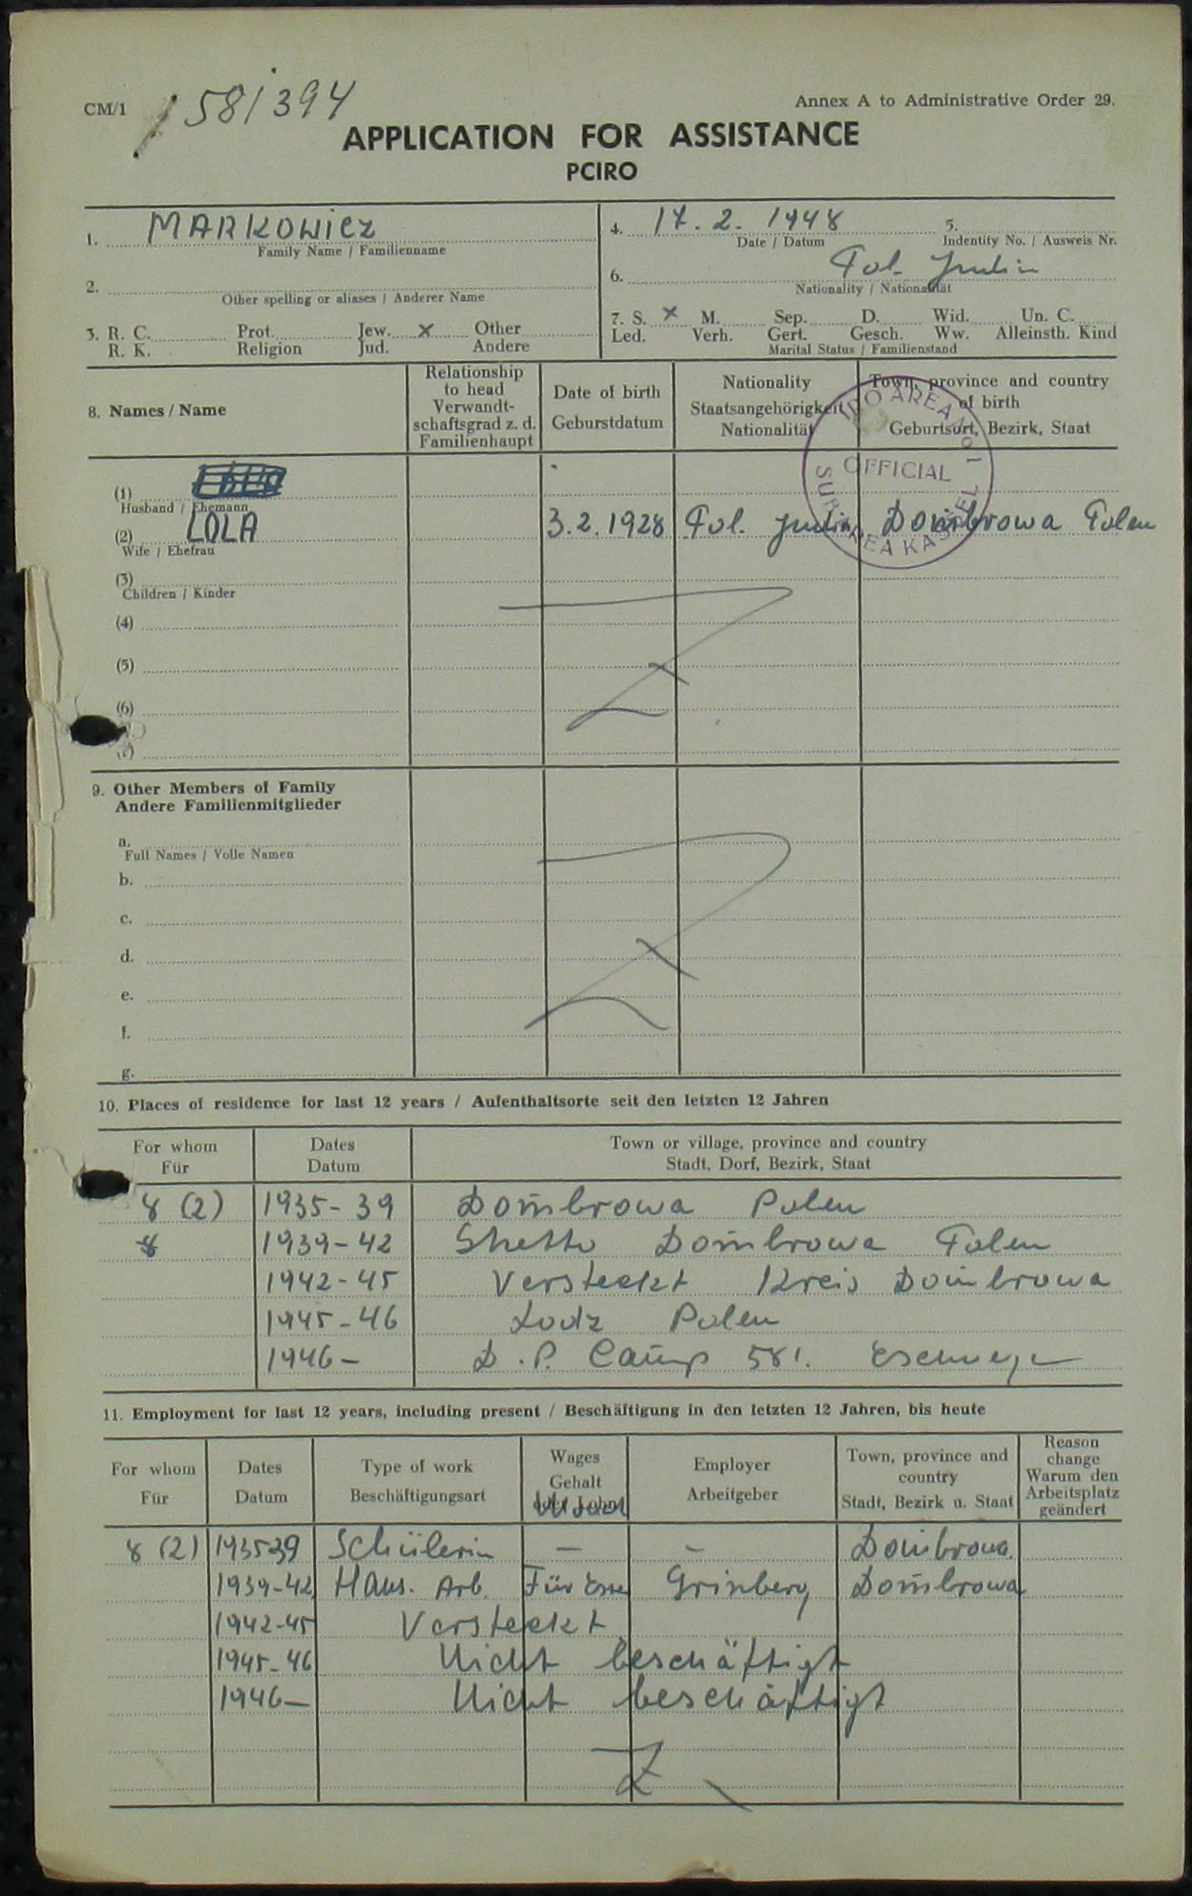 CM/1 581394 Annex A to Administrative Order 29.
APPLICATION FOR ASSISTANCE
PCIRO
1. MARKOWICZ 4. 17. 2. 1948 5.
Family Name / Familienname Date / Datum Indentity No. / Ausweis Nr.
2. 6. Pol. Jüdin
Other spelling or aliases / Anderer Name Nationality / Nationalität
3. R. C. Prot. Jew. x Other 7. S. x M. Sep. D. Wid. Un. C.
R. K. Religion Jud. Andere Led. Verh. Gert. Gesch. Ww. Alleinsth. Kind
Marital Status / Familienstand
8. Names / Name
Relationship to head Verwandt-schaftsgrad z. d. Familienhaupt
Date of birth Geburstdatum
Nationality Staatsangehörigkeit Nationalität
Town, province and country of birth Geburtsort, Bezirk, Staat
IRO AREA No 1
OFFICIAL
SUB AREA KASSEL
(1)
Husband / Ehemann
(2) LOLA 3.2.1928 Pol. Jüdin Dombrowa Polen
Wife / Ehefrau
(3)
Children / Kinder
(4)
(5)
(6)
(7)
9. Other Members of Family
Andere Familienmitglieder
a.
Full Names / Volle Namen
b.
c.
d.
e.
f.
g.
10. Places of residence for last 12 years / Aufenthaltsorte seit den letzten 12 Jahren
For whom Dates Town or village, province and country
Für Datum Stadt, Dorf, Bezirk, Staat
8 (2) 1935-39 Dombrowa Polen
8 1939-42 Ghetto Dombrowa Polen
1942-45 Versteckt Kreis Dombrowa
1945-46 Lodz Polen
1946- D.P. Camp 581. Eschwege
11. Employment for last 12 years, including present / Beschäftigung in den letzten 12 Jahren, bis heute
For whom Für
Dates Datum
Type of work Beschäftigungsart
Wages Gehalt
Employer Arbeitgeber
Town, province and country Stadt, Bezirk u. Staat
Reason change Warum den Arbeitsplatz geändert
8 (2) 1935-39 Schülerin — — Dombrowa
1939-42 Haus. Arb. Für Essen Grinberg Dombrowa
1942-45 Versteckt
1945-46 Nicht beschäftigt
1946- Nicht beschäftigt